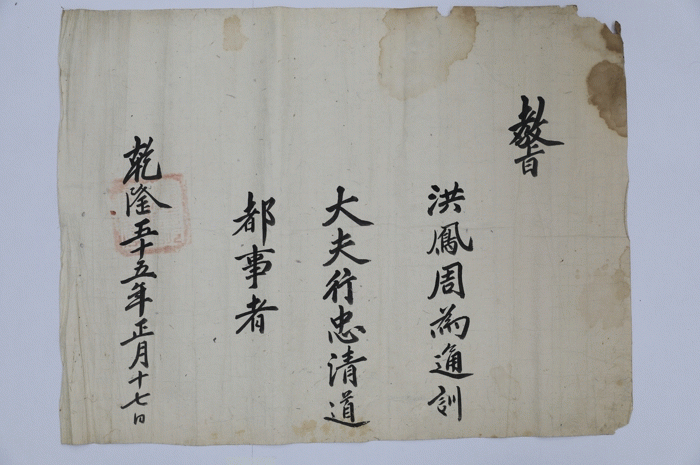 教旨
洪鳳周為通訓
大夫行忠清道
都事者
乾隆五十五年正月十七日